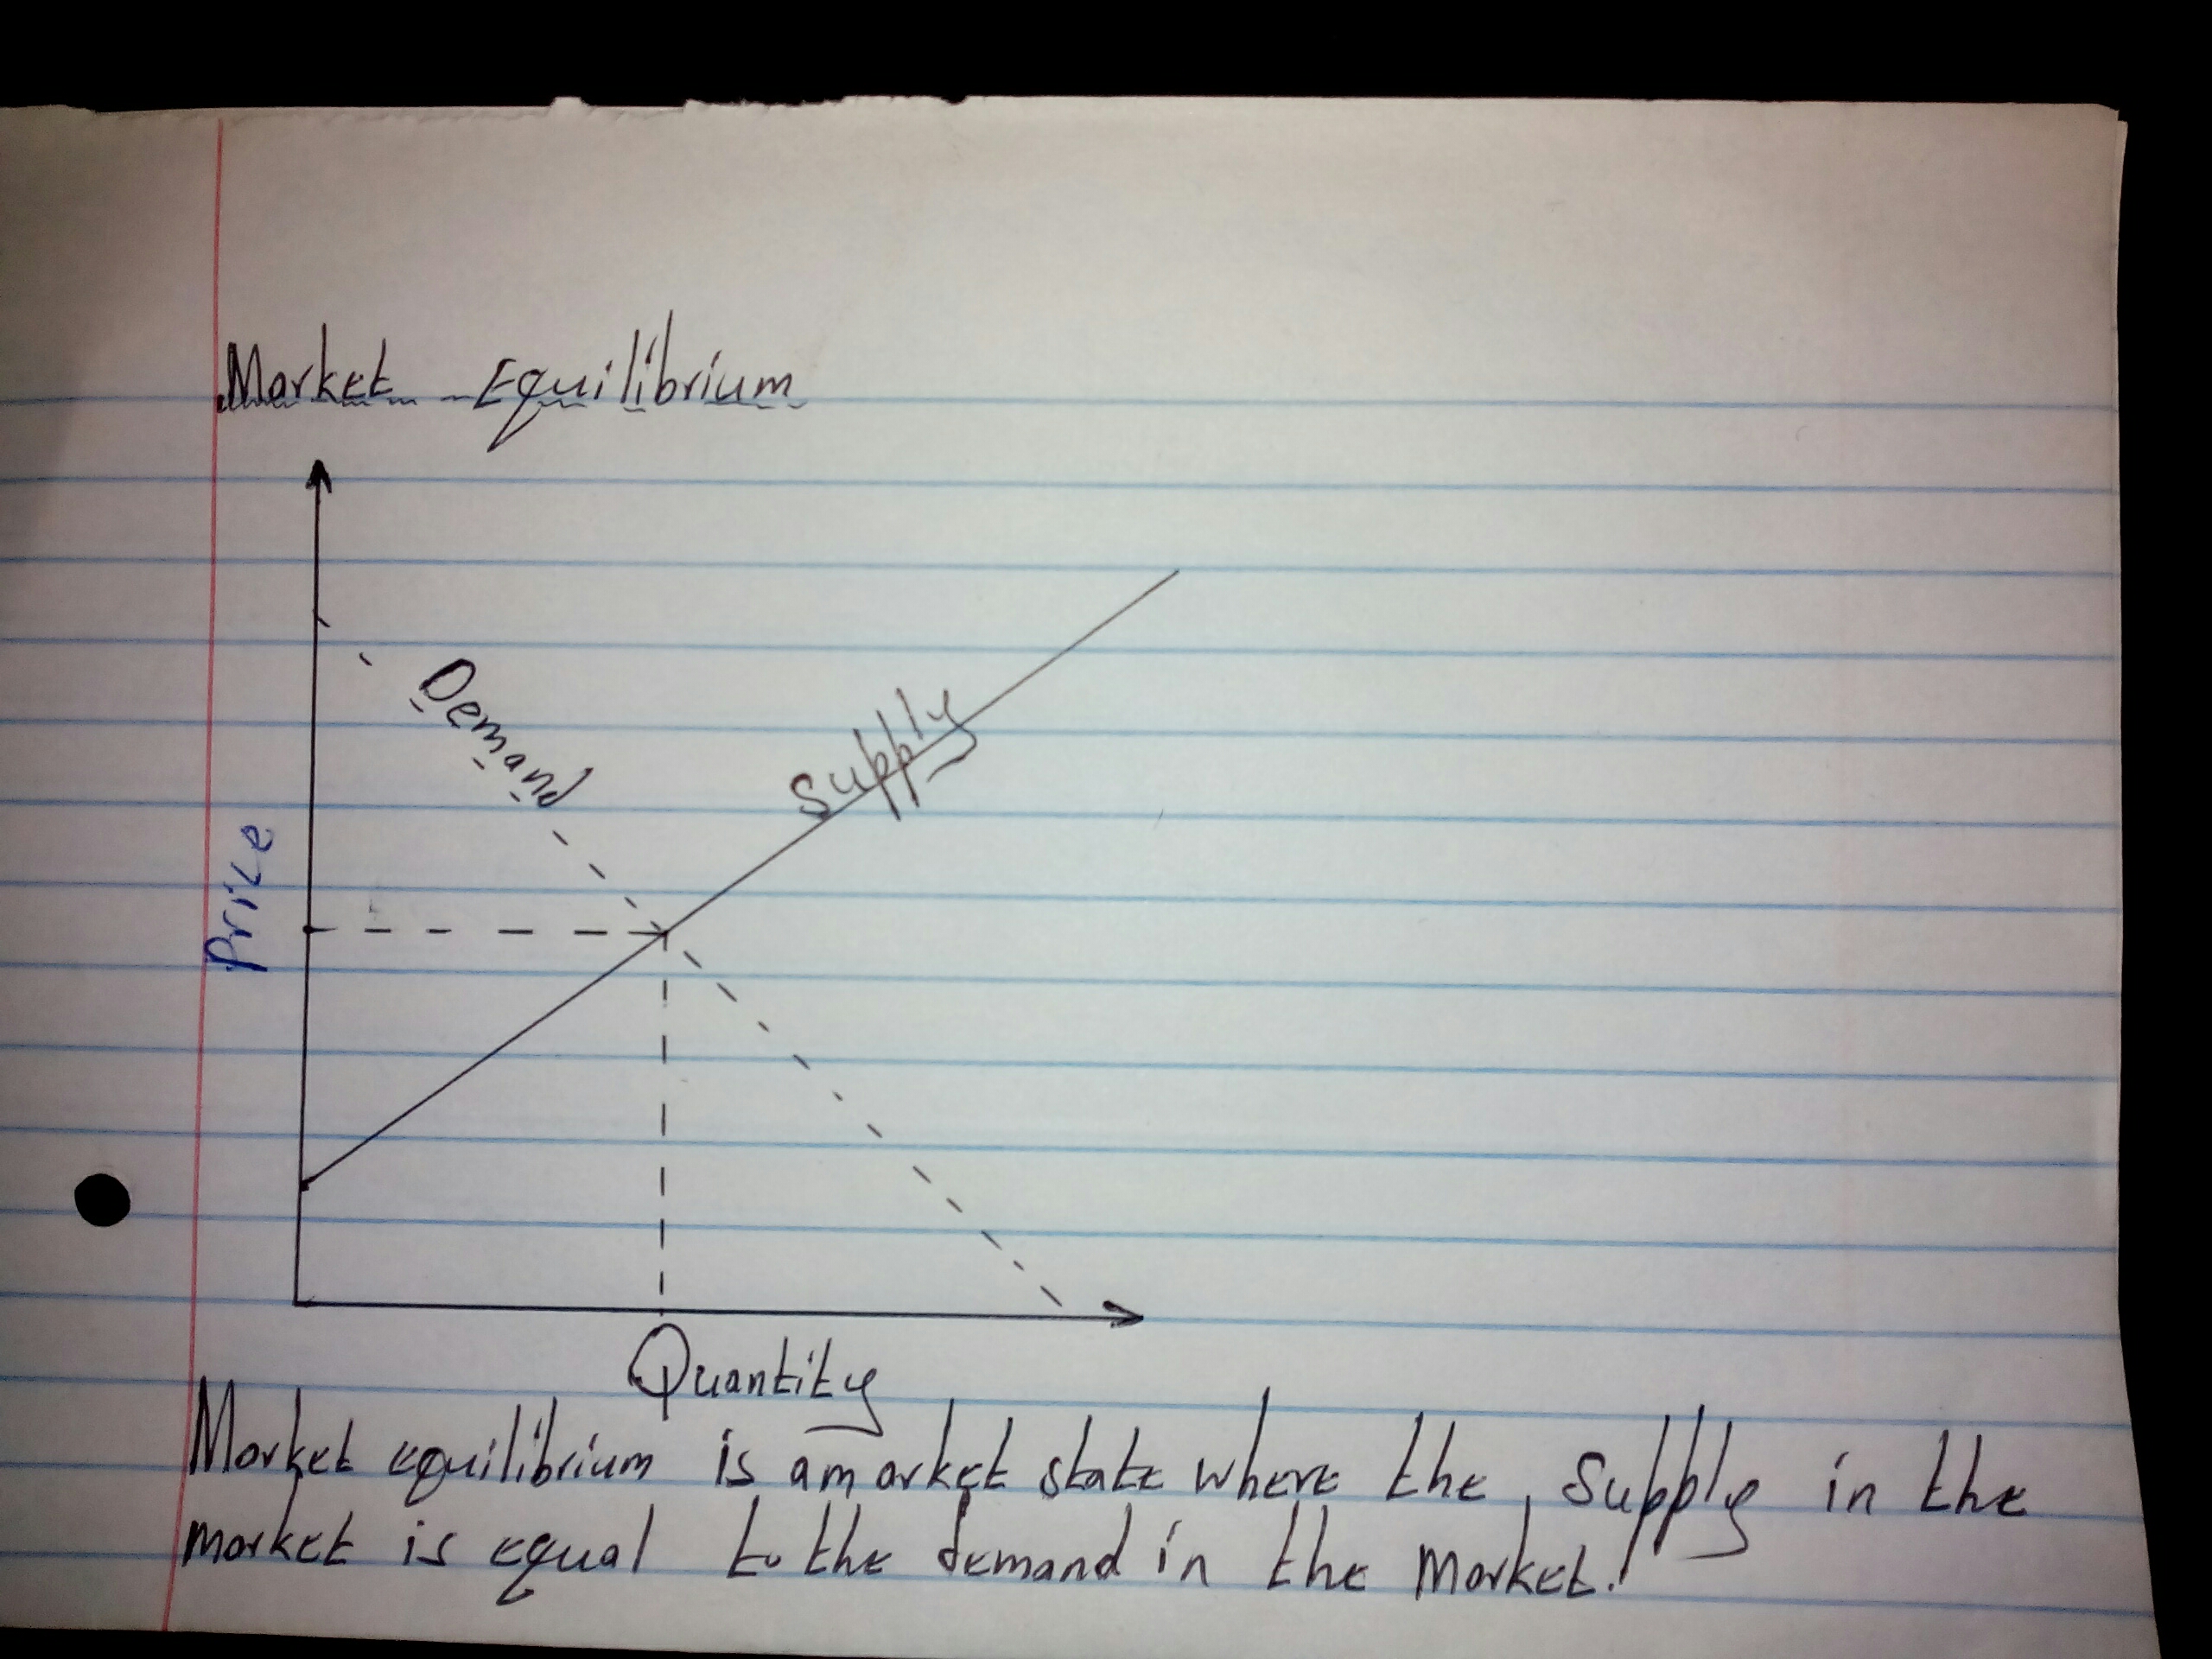 Market Equilibrium
Demand
Supply
Price
Quantity
Market equilibrium is a market state where the supply in the
market is equal to the demand in the market.